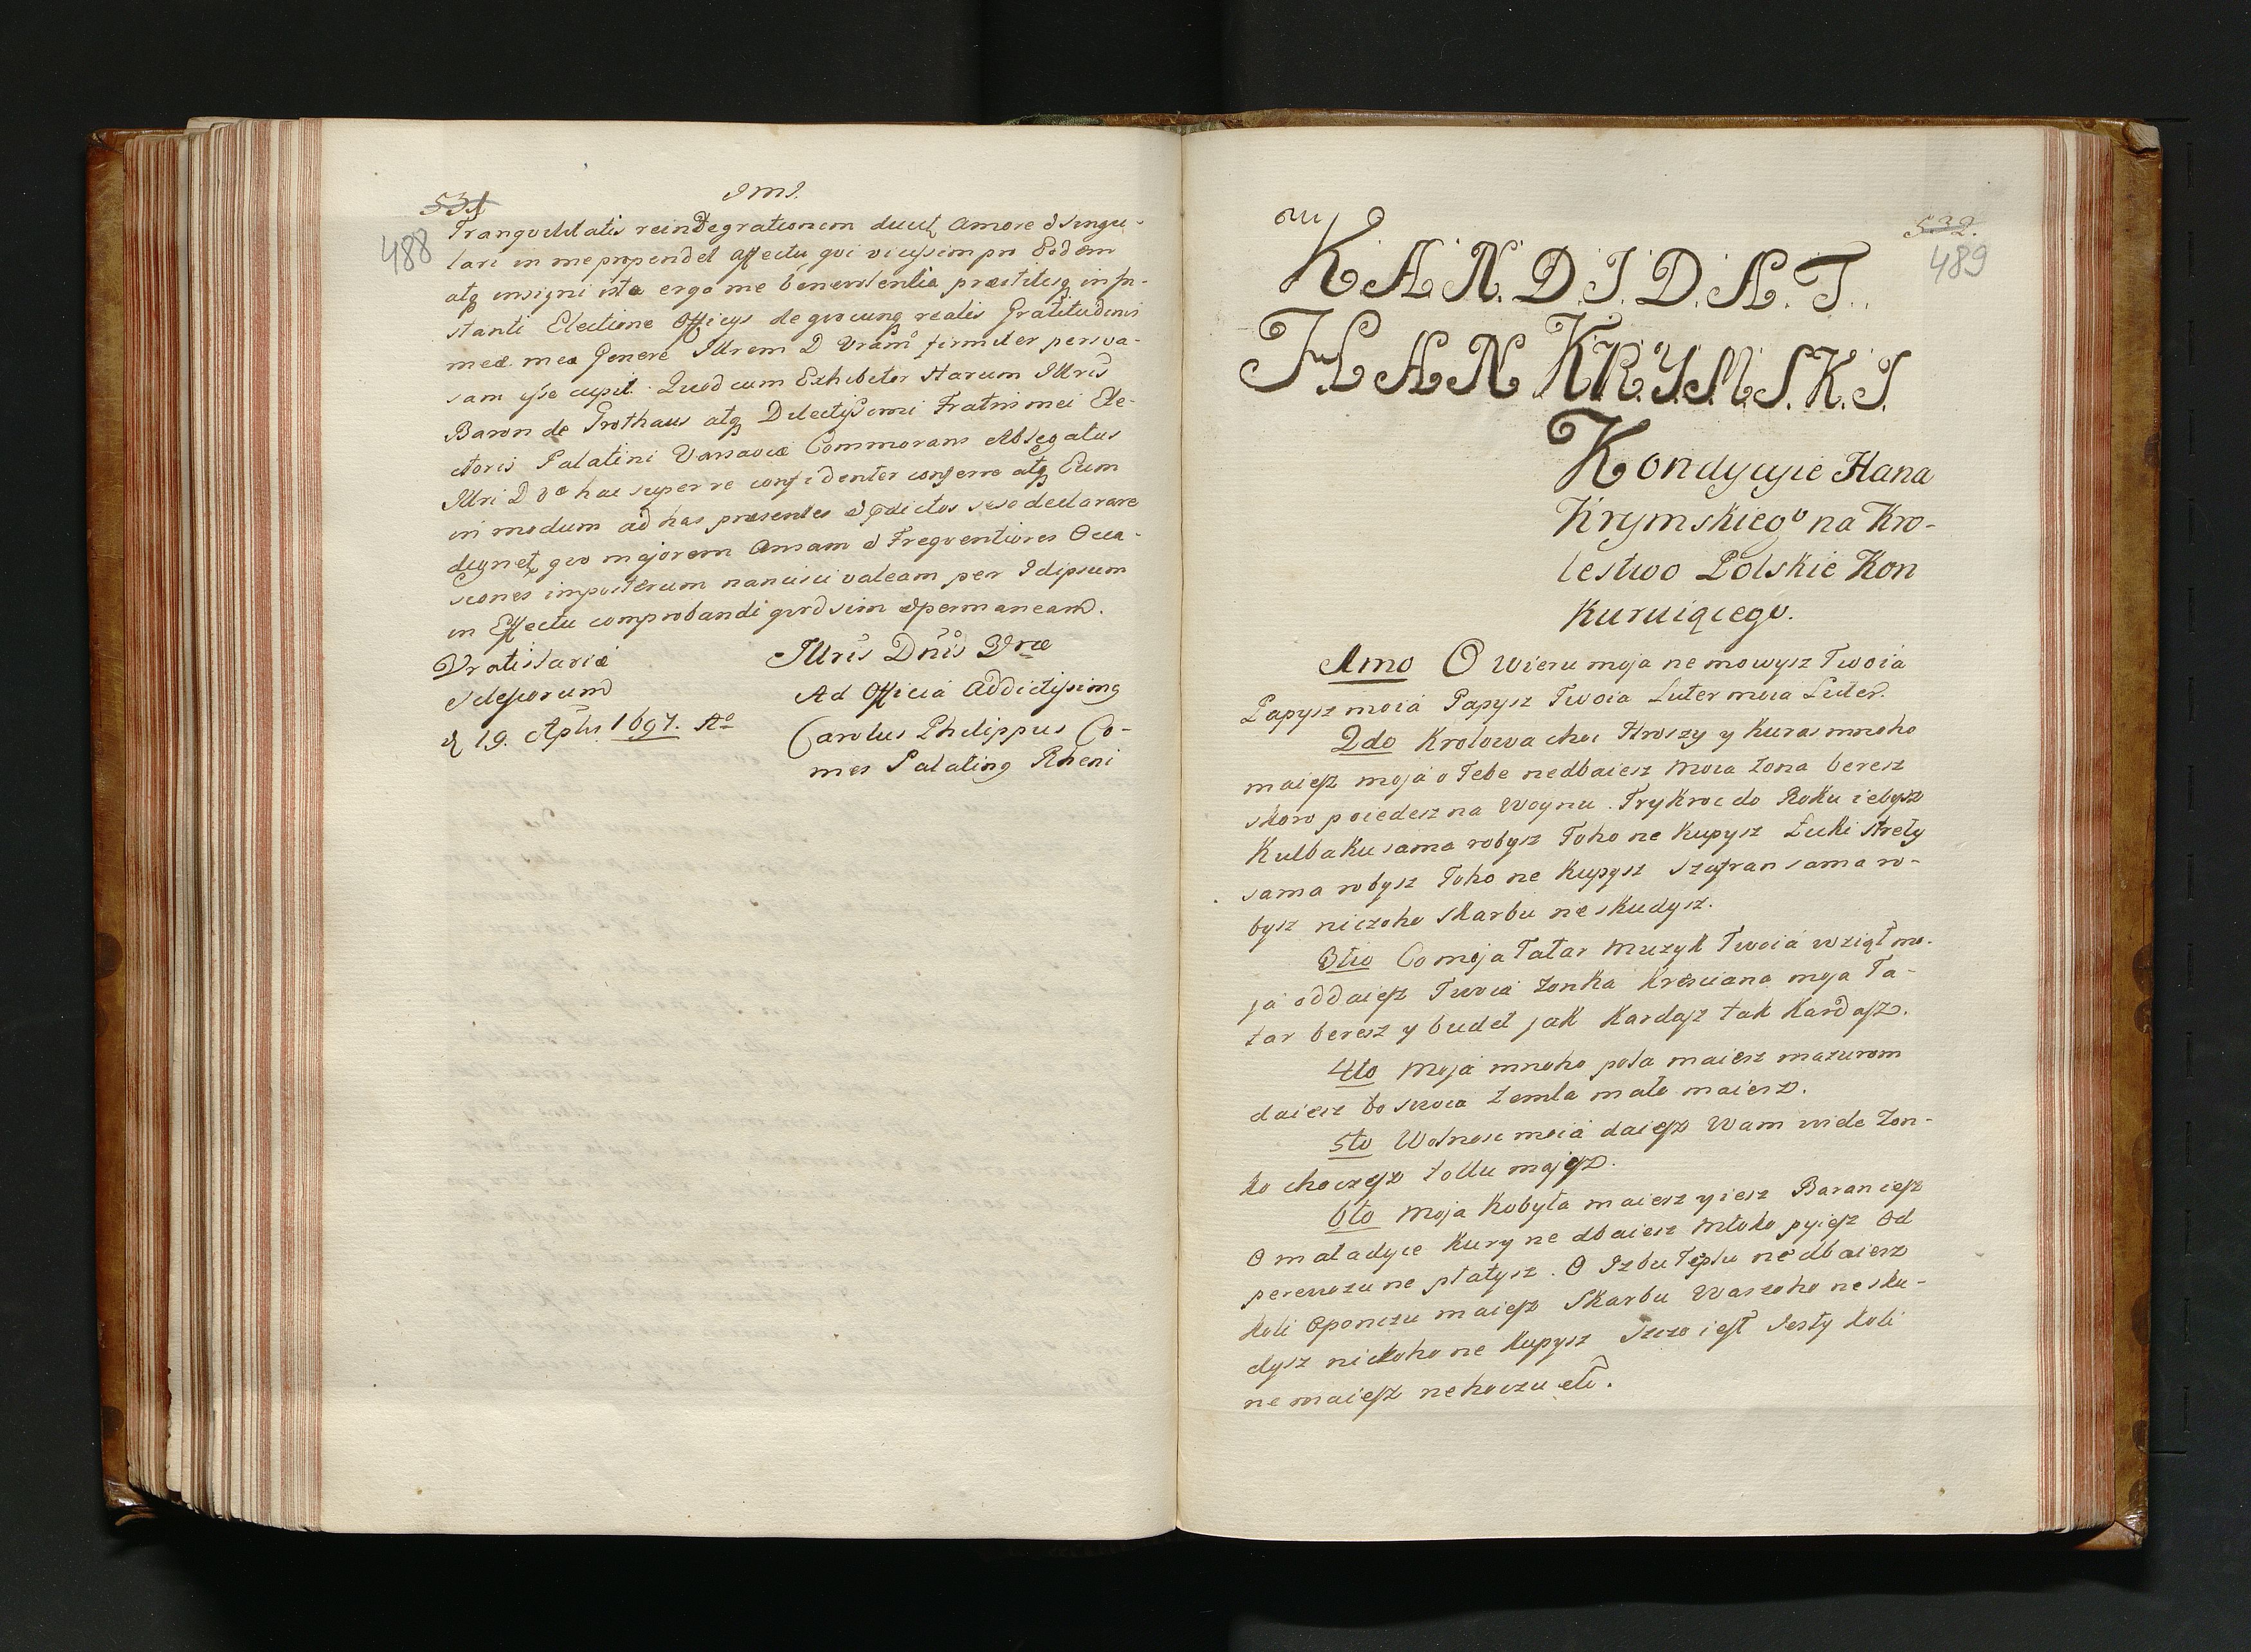 531
488
JMJ.
Tranquilitatis reindegrationem ducit Amore & singu-
lari in me propendet affectu qvi vicissim pro Eodem
atq insigni ista erga me benevolentia præstitisq in In-
stanti Electione Officys de qvocunq realis Gratitudinis
meæ mea Genere Illrem D Vram firmiter persva-
sam esse cupit. Quod cum Exhibitor Harum Illris
Baron de Grothaus atq Dilectissimi Fratris mei Ele-
ctoris Palatini Varsaviæ Commorans Ablegatus
Illri D Væ hac super re confidenter conferre atq Eum
in modum ad has præsentes & dictos sese declarare
dignet, qvo majorem Ansam & Freqventiores Occa-
siones imposterum nancisci valeam per Idipsum
in Effectu comprobandi qvod sim & permaneam.
Vratislaviæ
Silesiorum
d 19. Aplis 1697. Ao
Illris Dnis Vræ
Ad Officia Addictissimq
Carolus Philippus Co-
mes Palatinq Rheni
532.
489
KANDIDAT
HAN KRYMSKI
Kondycyie Hana
Krymskiego na Kro-
lestwo Polskie Kon
kuruiącego.
1mo O wieru moja ne mowysz Twoia
Papysz moiá Papysz Twoia Luter moia Luter.
2do Krolowa choc Hroszy y Kuras mnoho
maiesz moja o Tebe nedbaiesz Moia żona beresz
skoro poiedesz na Woynu. Try kroc do Roku
Kulbaku sama robysz Toho ne kupysz Łuki Strely
sama robysz Toho ne kupysz Szafran sama ro-
bysz niczoho Skarbu ne skudysz.
3tio Co moja Tatar Muzyk Twoiá wziął mo-
já oddaiesz Twoiá żonka Kresciana moja Ta-
tar beresz y budet jak Kardasz tak Kardasz.
4to Moja mnoho pola maiesz mazurom
daiesz bo swoia żemla mało maiesz.
5to Wolnosc moiá daiesz Wam wide żon-
ko choczesz tollu majesz.
6to Moja Kobyła maiesz yiesz Baran iesz
O maładyie kury ne dbaiesz Młoko pyiesz Od
perewozu ne płatysz. O Izbu Tepłu ne dbaiesz
koli Oponczu maiesz Skarbu Waszoho ne sku-
dysz nickoho ne kupysz Szczo iest Jesty koli
ne maiesz ne hoczu etc.